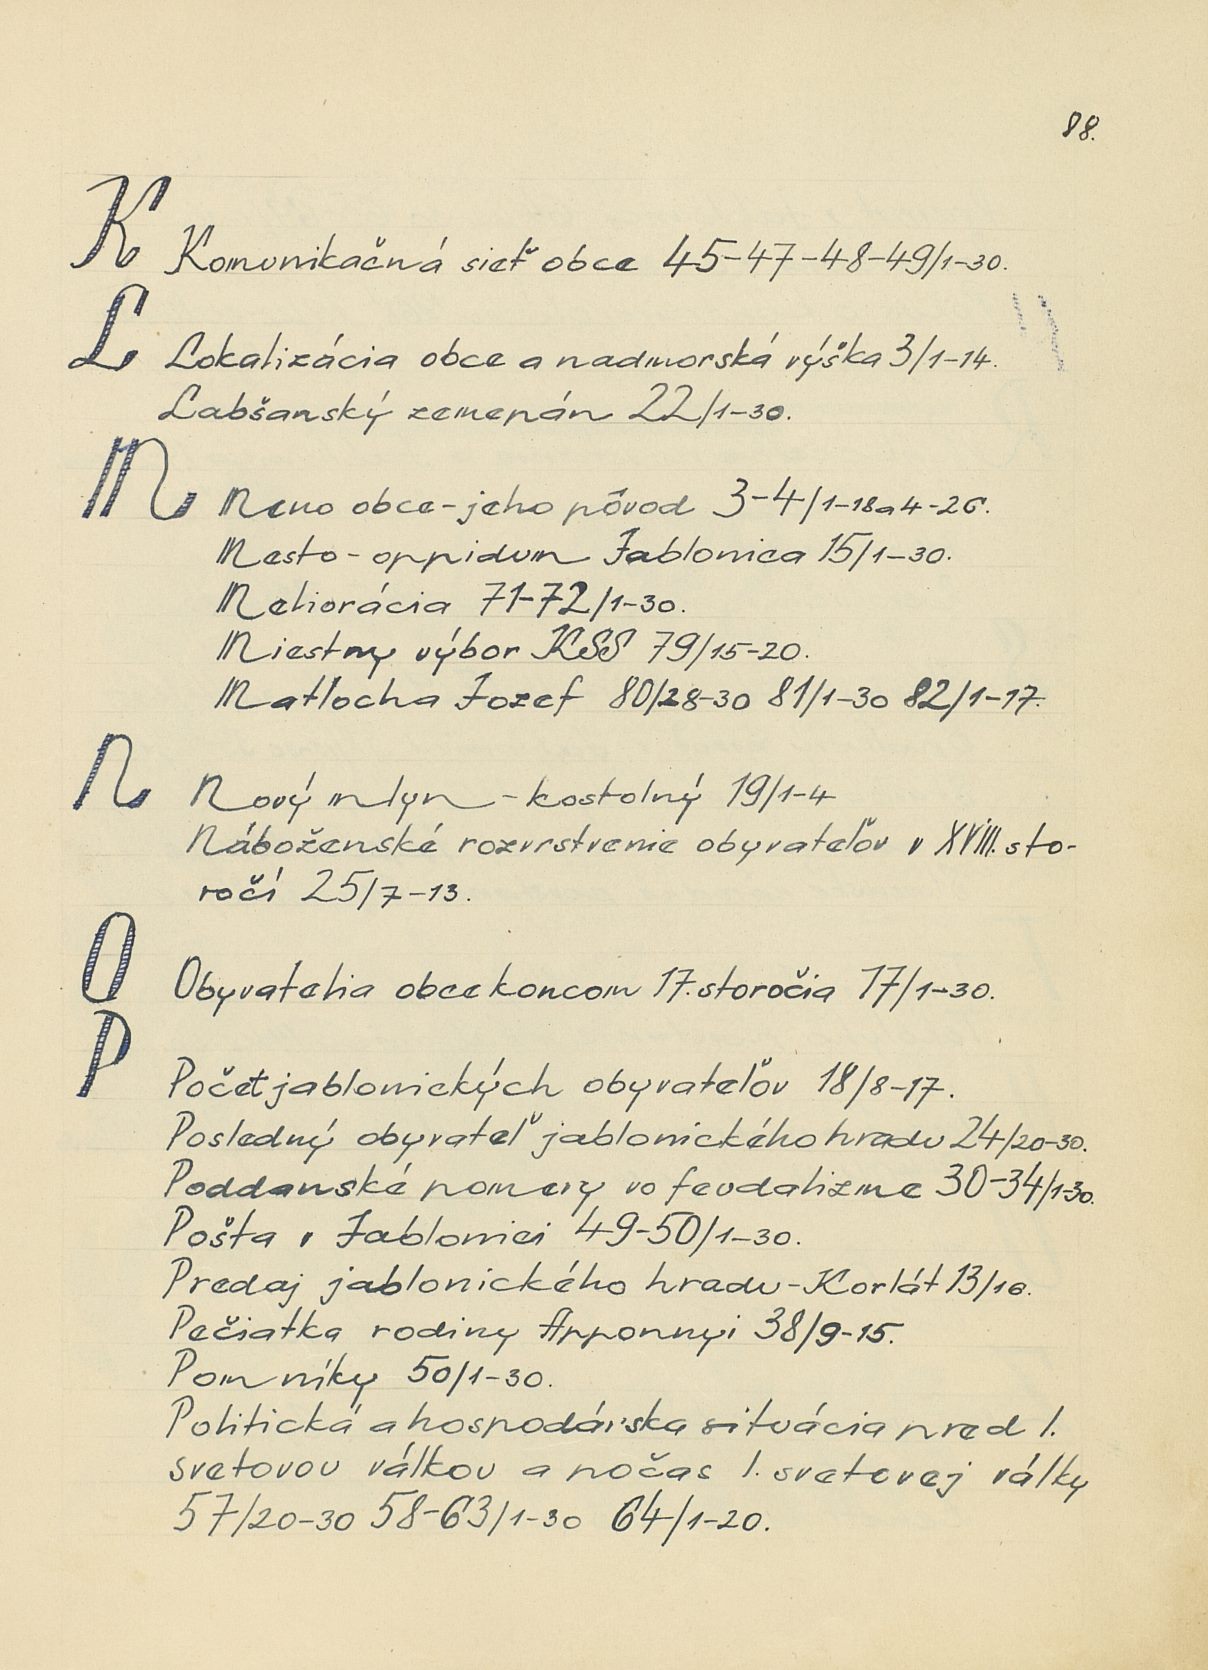 88.
K
Komunikačná sieť obce 45-47-48-49/1-30.
L
Lokalizácia obce a nadmorská výška 3/1-14.
Labšanský zemepán 22/1-30.
M
Meno obce-jeho pôvod 3-4/1-18a4-26.
Mesto-oppidum Jablonica 15/1-30.
Meliorácia 71-72/1-30.
Miestny výbor KSS 79/15-20.
Matlocha Jozef 80/28-30 81/1-30 82/1-17.
N
Nový mlyn-kostolný 19/1-4
Náboženské rozvrstvenie obyvateľov v XVIII. sto-
ročí 25/7-13.
O
Obyvatelia obce koncom 17. storočia 17/1-30.
P
Počet jablonických obyvateľov 18/8-17.
Posledný obyvateľ jablonického hradu 24/20-30.
Poddanské pomery vo feudalizme 30-34/1-30.
Pošta v Jablonici 49-50/1-30.
Predaj jablonického hradu-Korlát 13/16.
Pečiatka rodiny Apponnyi 38/9-15.
Pomníky 50/1-30.
Politická a hospodárska situácia pred I.
svetovou válkou a počas I. svetovej války
57/20-30 58-63/1-30 64/1-20.